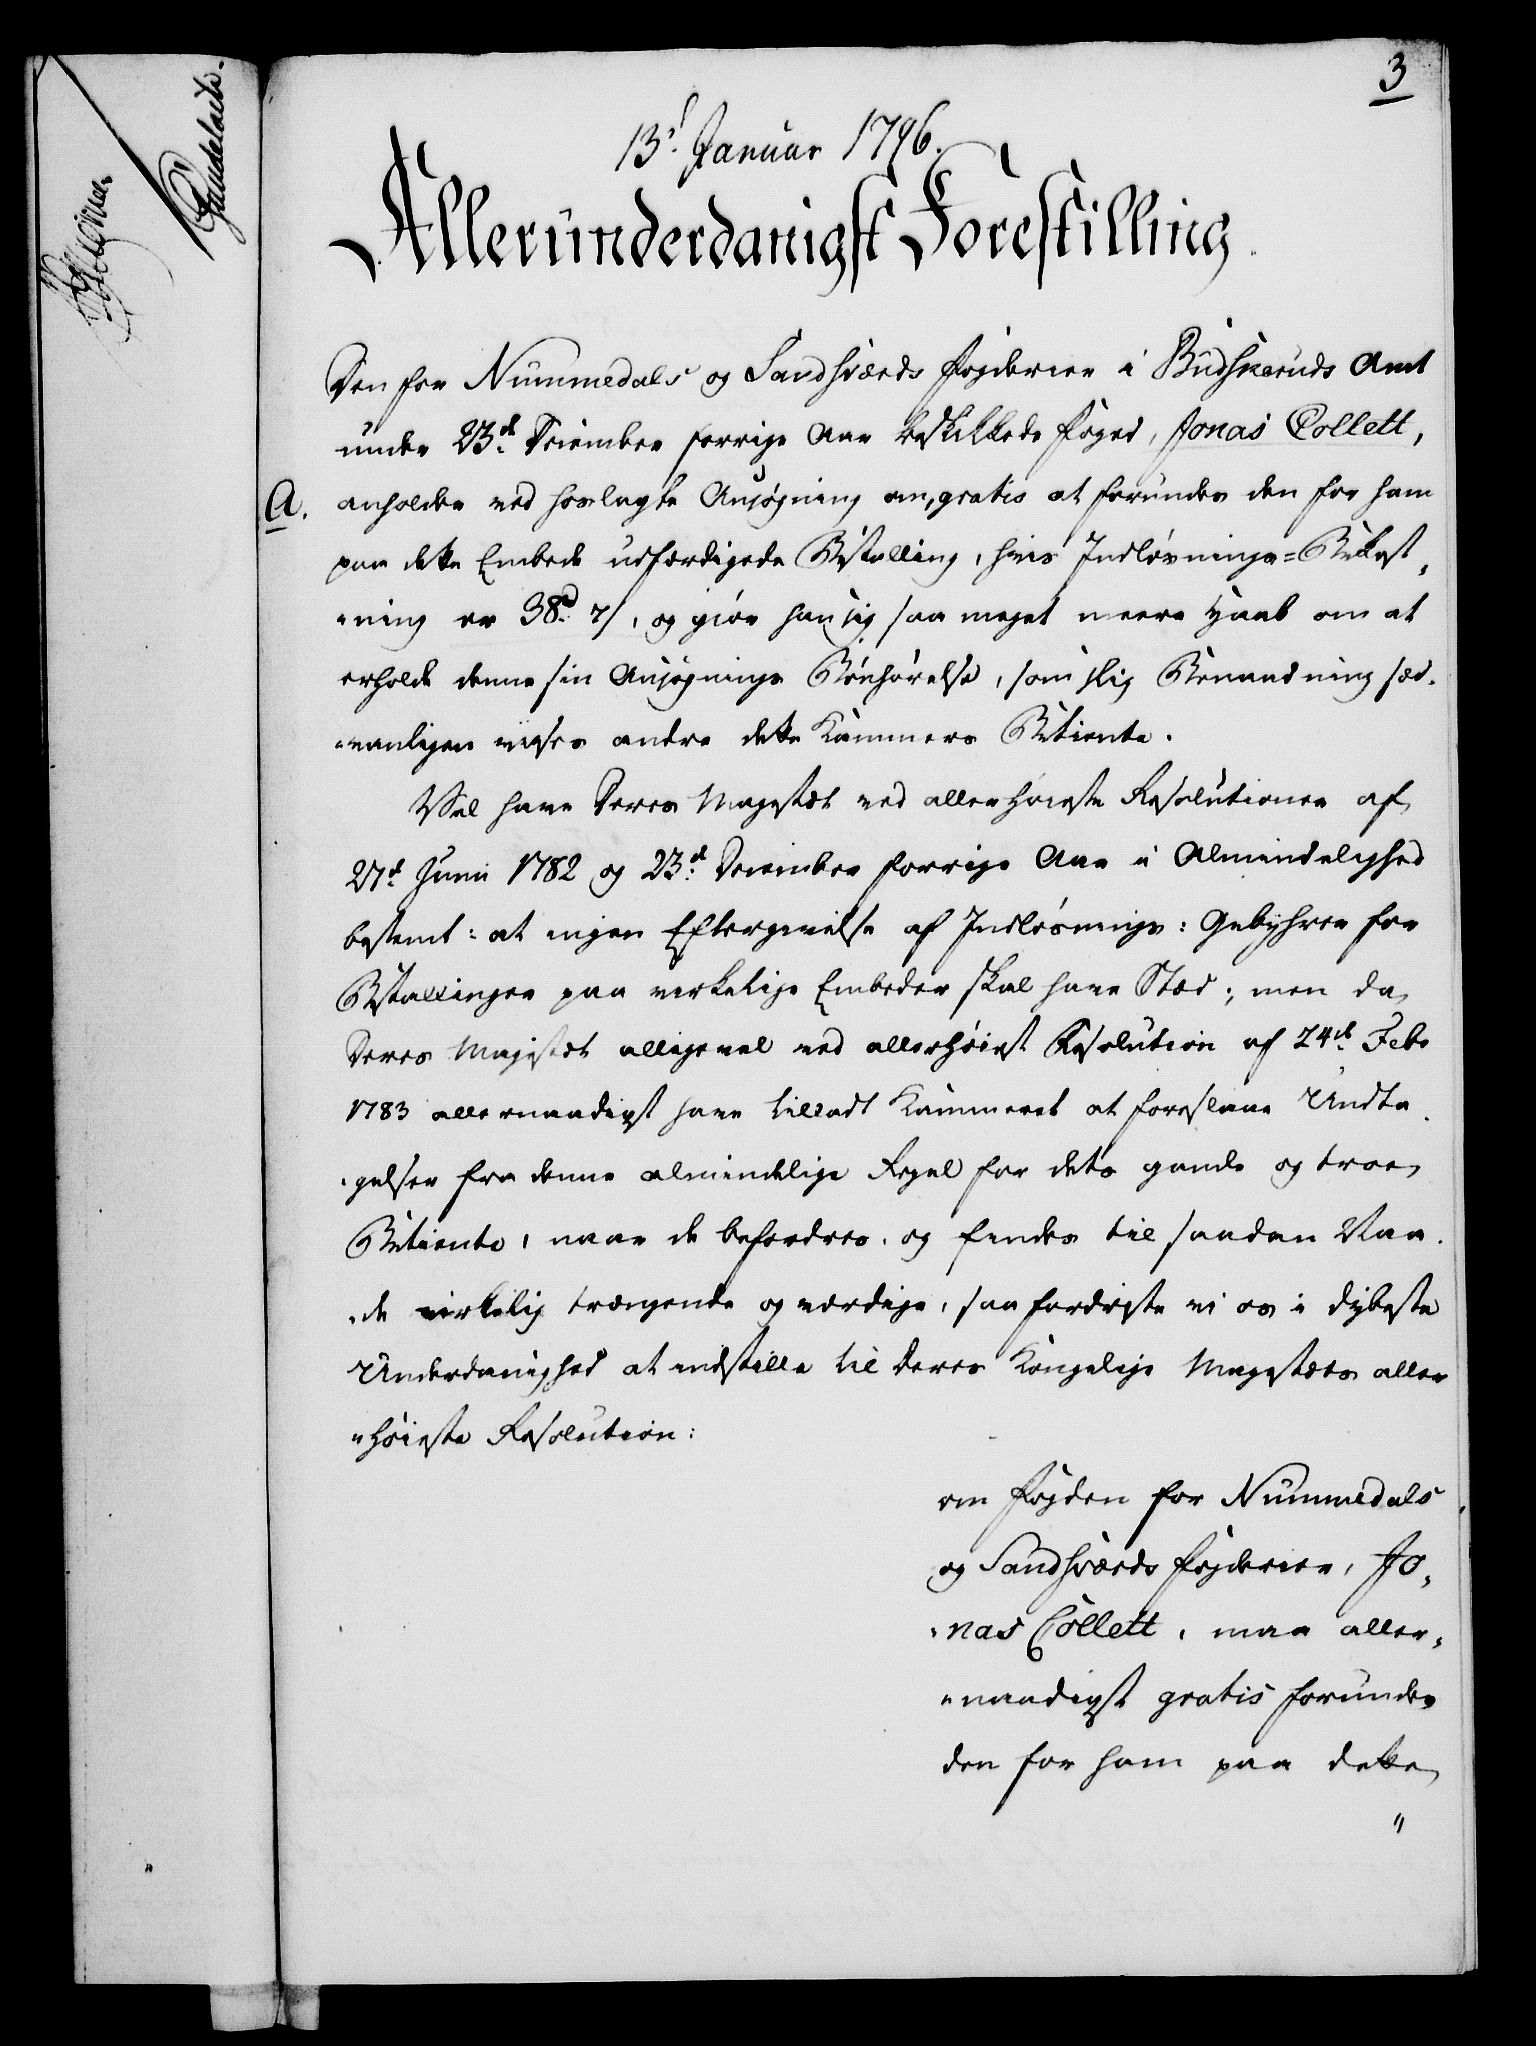 3
13d Januar 1796.
Allerunderdanigst Forestilling
Den for Nummedals og Sandsværds Fogderier i Budskeruds Amt
under 23de December forrige Aar beskikkede Foged, Jonas Collett,
A. anholder ved hoslagte Ansøgning om, gratis at forundes den for ham
paa dette Embede udfærdigede Bestalling, hvis Indløsnings-Bekost„
„ning er 38rd 7/, og giør han sig saa meget meere Haab om at
erholde denne sin Ansøgnings Bønhørelse, som slig Benaadning sæd„
„vanligen vises andre dette Kammers Betiente.
Vel have Deres Majestæt ved allerhøieste Resolutioner af
27d Junii 1782 og 23d December forrige Aar i Almindelighed
bestemt: at ingen Eftergivelse af Indløsnings: Gebyhrer for
Bestallinger paa virkelige Embeder skal have Sted; men da
Deres Majestæt alligevel ved allerhøiest Resolution af 24de Febr
1783 allernaadigst have tilladt Kammeret at foreslaae Undta„
„gelser fra denne almindelige Regel for dets gamle og troe
Betiente, naar de befordres, og findes til saadan Naa„
„de virkelig trængende og værdige, saa fordriste vi os i dybeste
Underdanighed at indstille til Deres Kongelige Majestæts aller
„høieste Resolution:
om Fogden for Nummedals
og Sandsværds Fogderier, Jo„
„nas Collett, maa aller„
„naadigst gratis forundes
den for ham paa dette
„